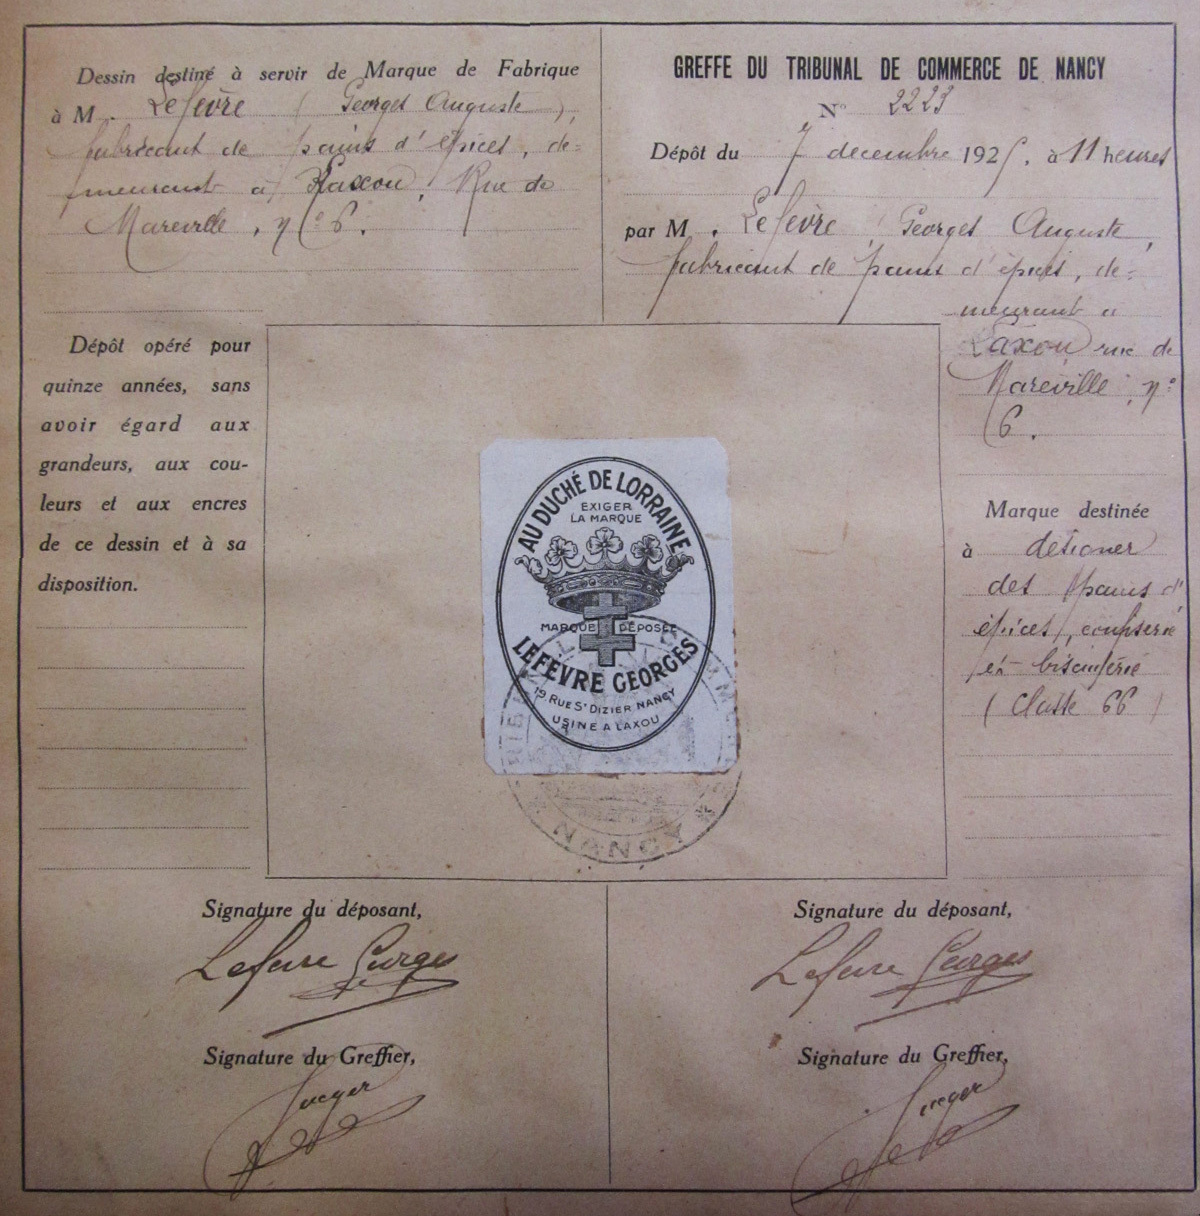 Dessin destiné à servir de Marque de Fabrique
à M. Lefèvre (Georges Auguste),
fabricant de pains d'épices, de=
meurant à Laxou, Rue de
Mareville, n° 6.
GREFFE DU TRIBUNAL DE COMMERCE DE NANCY
N° 2223
Dépôt du 7 décembre 1925, à 11 heures
par M. Lefèvre, Georges Auguste,
fabricant de pains d'épices, de=
meurant à
Laxou rue de
Mareville, n°
6.
Dépôt opéré pour
quinze années, sans
avoir égard aux
grandeurs, aux cou-
leurs et aux encres
de ce dessin et à sa
disposition.
AU DUCHÉ DE LORRAINE
EXIGER
LA MARQUE
MARQUE DÉPOSÉE
LEFÈVRE GEORGES
19 RUE St DIZIER NANCY
USINE A LAXOU
NANCY
Marque destinée
à désigner
des pains d'
épices, confiserie
et biscuiterie
(Classe 66)
Signature du déposant,
Lefevre Georges
Signature du Greffier,
Signature du déposant,
Lefevre Georges
Signature du Greffier,